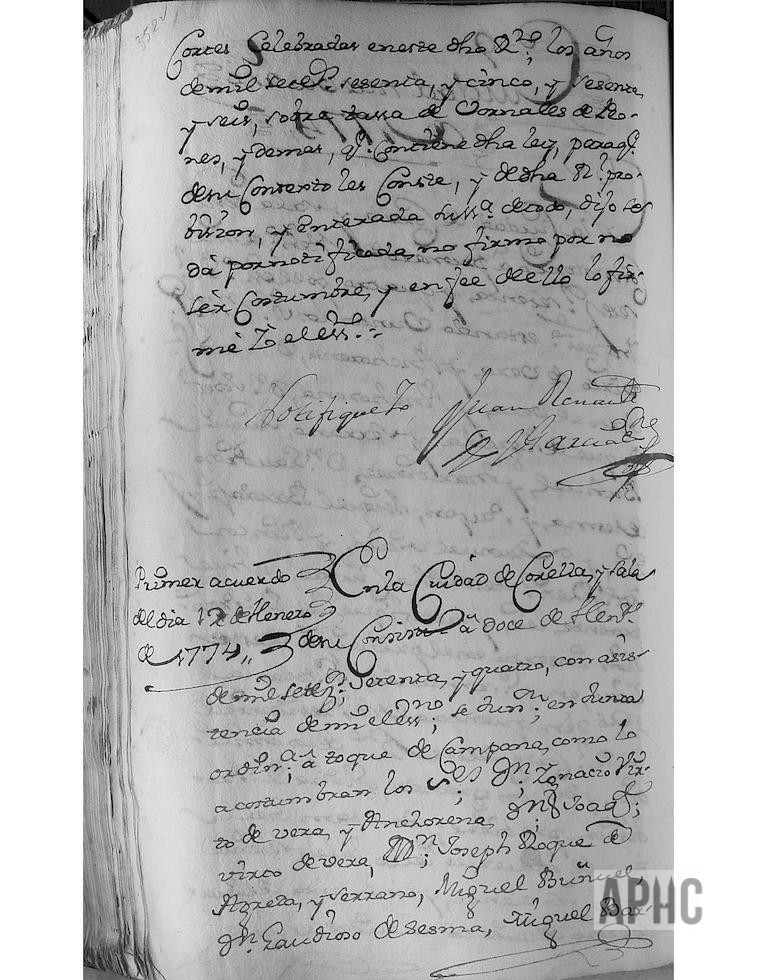 358v
Cortes Celebradas en este dho Rno. los años
de mil setecs. sesenta, y cinco, y sesenta
y seis, sobre tassa de Jornales de Peo-
nes, y demas, q. contiene dha ley, paraq.
de su Contexto les Conste, y de dha Rl. pro-
bission, y enterada su ssa. de todo, dijo se
dá por notificada, no firmo por no
ser Costumbre, y en fee de ello lo fir-
mé Yo el essno.
Notifiquelo, Juan Renault
y Garcia essno
Primer acuerdo
del dia 12 de Henero
de 1774,,
En la Ciudad de Corella, y Sala
de su Consisto. â doce de Heno.
de mil setezs. setenta, y quatro, con asis-
tencia de mi el essno. se Junn. en Junta
ordina. â toque de Campana, como lo
acostumbran los Sres. Dn. Ignacio Vir-
to de vera, y Anchorena, Dn. Joaqn.
virto de vera, Dn. Joseph Roque de
Agreda, y Serrano, Miguel Buñuel,
Dn. Gaudioso de Sesma, Miguel Bar-
APHC